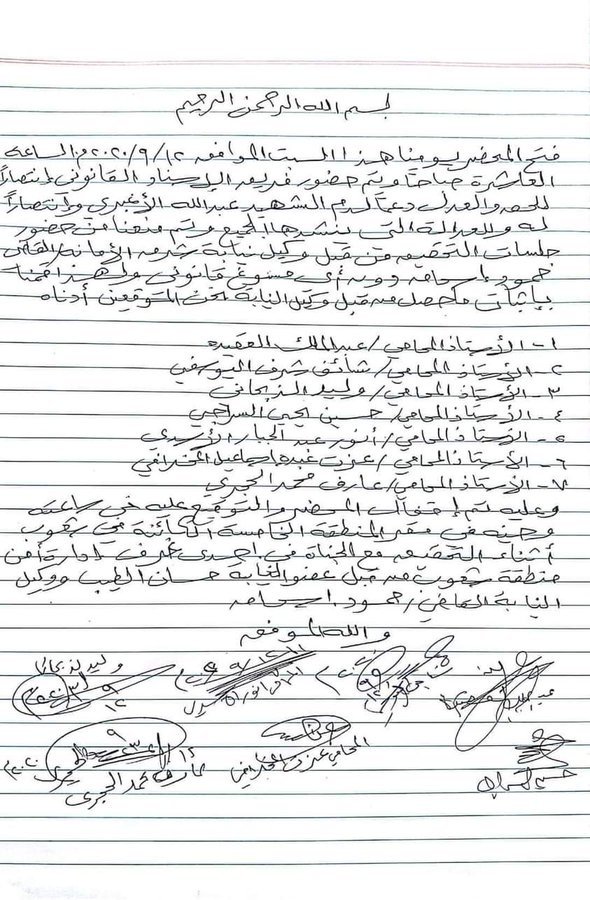 بسم الله الرحمن الرحيم
فتح المحضر يومنا هذا السبت الموافق ١٢/٩/٢٠٢٠م الساعة
العاشرة صباحاً وتم حضور فريق الإسناد القانوني إنتصاراً
للحق والعدل دعماً لدم الشهيد عبدالله الأغبري وانتصاراً
له وللعدالة التي ينشدها الجميع وتم منعنا من حضور
جلسات التحقيق من قبل وكيل نيابة شرق الأمانة القاضي
حمود إسحاق دون أي مسوغ قانوني ولهذا قمنا
بإثبات ما حصل من قبل وكيل النيابة نحن الموقعين أدناه
١- الأستاذ المحامي/ عبدالملك العقيدة
٢- الأستاذ المحامي/ شائف شرف اليوسفي
٣- الأستاذ المحامي/ وليد الذبحاني
٤- الأستاذ المحامي/ حسين يحيى السراجي
٥- الأستاذ المحامي/ أنور عبد الجبار الأسدي
٦- الأستاذ المحامي/ عزت عبده إسماعيل المخرافي
٧- الأستاذ المحامي/ عارف محمد الحجري
وعليه تم إقفال المحضر والتوقيع عليه في ساعته
وحينه في مقر المنطقة الخامسة الكائنة في شعوب
أثناء التحقيق مع الجناة في إحدى غرف إدارة أمن
منطقة شعوب من قبل عضو النيابة حسان الطيب ووكيل
النيابة القاضي/ حمود إسحاق
والله الموفق
وليد الذبحاني
المحامي أنور الأسدي
عارف محمد الحجري
المحامي عزت المخرافي